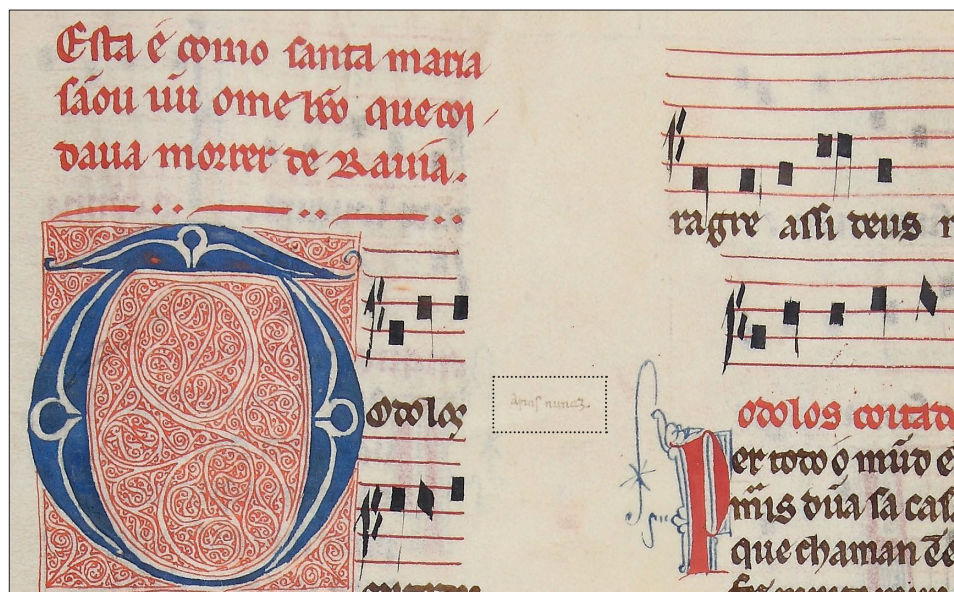 Esta é como santa maria
sãou uũ ome bõo que coi
daua morrer de Rauia.
Odolos
arias nunez.
ragre assi deus
odolos coitad
Per toto o mũdo e
mais dũa sa cas
que chaman